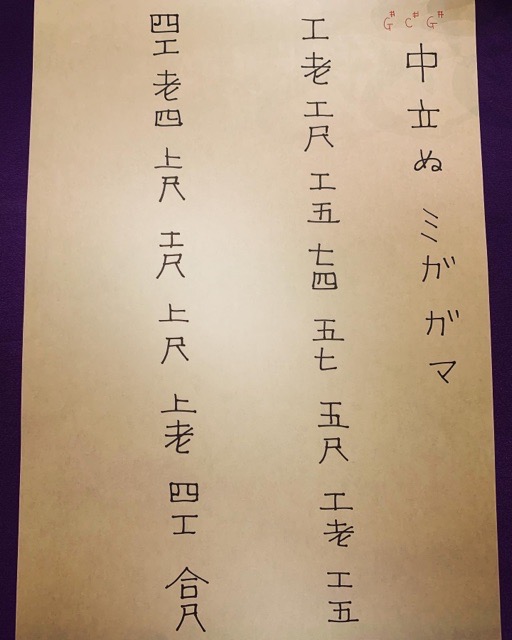 G# C# G#
中立ぬ ミガガマ
工老工尺工五七四五七五尺工老工五
四工老四上尺工尺上尺上老四工合尺